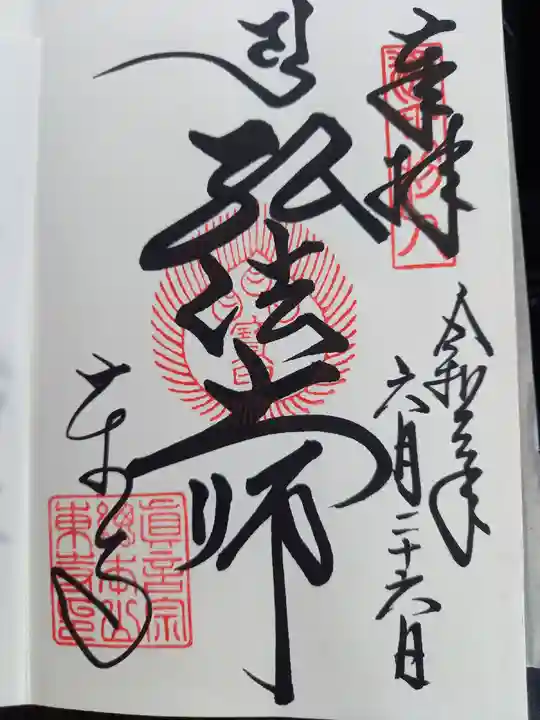 奉拝
令和年
六月二十六日
弘法大師
東寺
眞言宗
總本山
東寺印